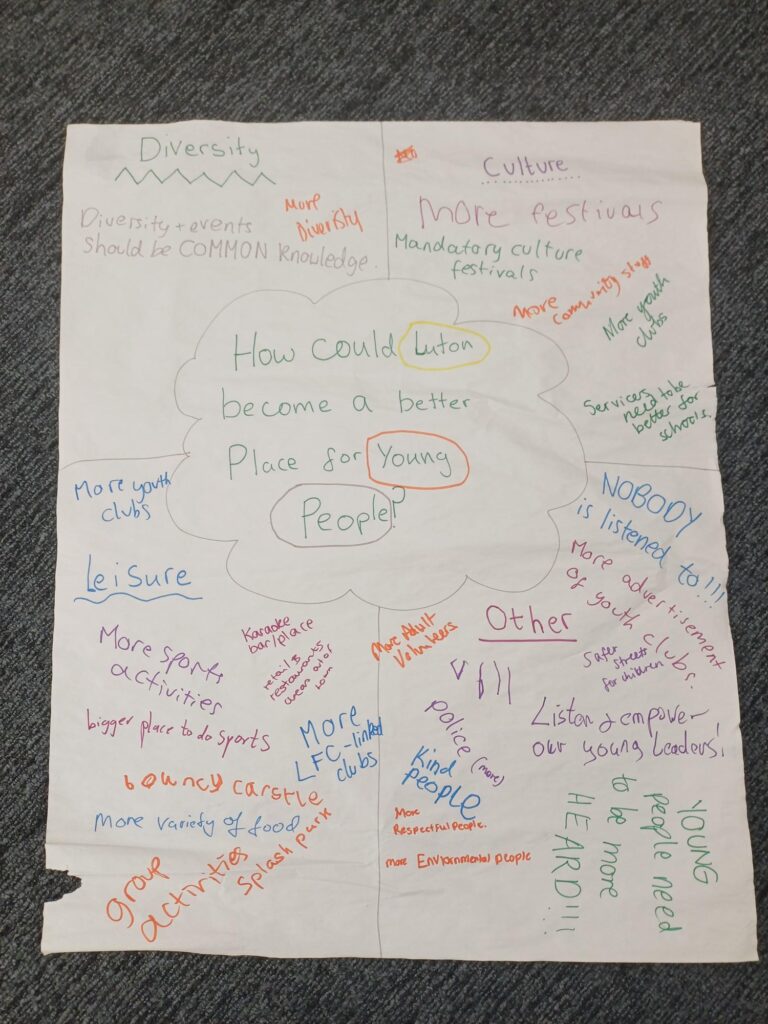 Diversity
Diversity + events
should be COMMON knowledge.
More
Diveristy
Culture
More festivals
Mandatory culture
festivals
More
community stuff
More youth
clubs
Services
need to be
better for
schools.
How could Luton
become a better
Place for Young
People?
More youth
clubs
Leisure
More sports
activities
Karaoke
bar/place
retail &
restaurants
town
bigger place to do sports
More
LFC-linked
clubs
bouncy carstle
More variety of food
group
activities
splash park
NOBODY
is listened to!!!
More advertisement
of youth clubs.
Other
More Adult
Volunteers
Safer
streets
for children
police (more)
Listen & empower
our young leaders!
Kind
people
More
Respectful people.
more Enviornmental people
YOUNG
people need
to be more
HEARD!!!